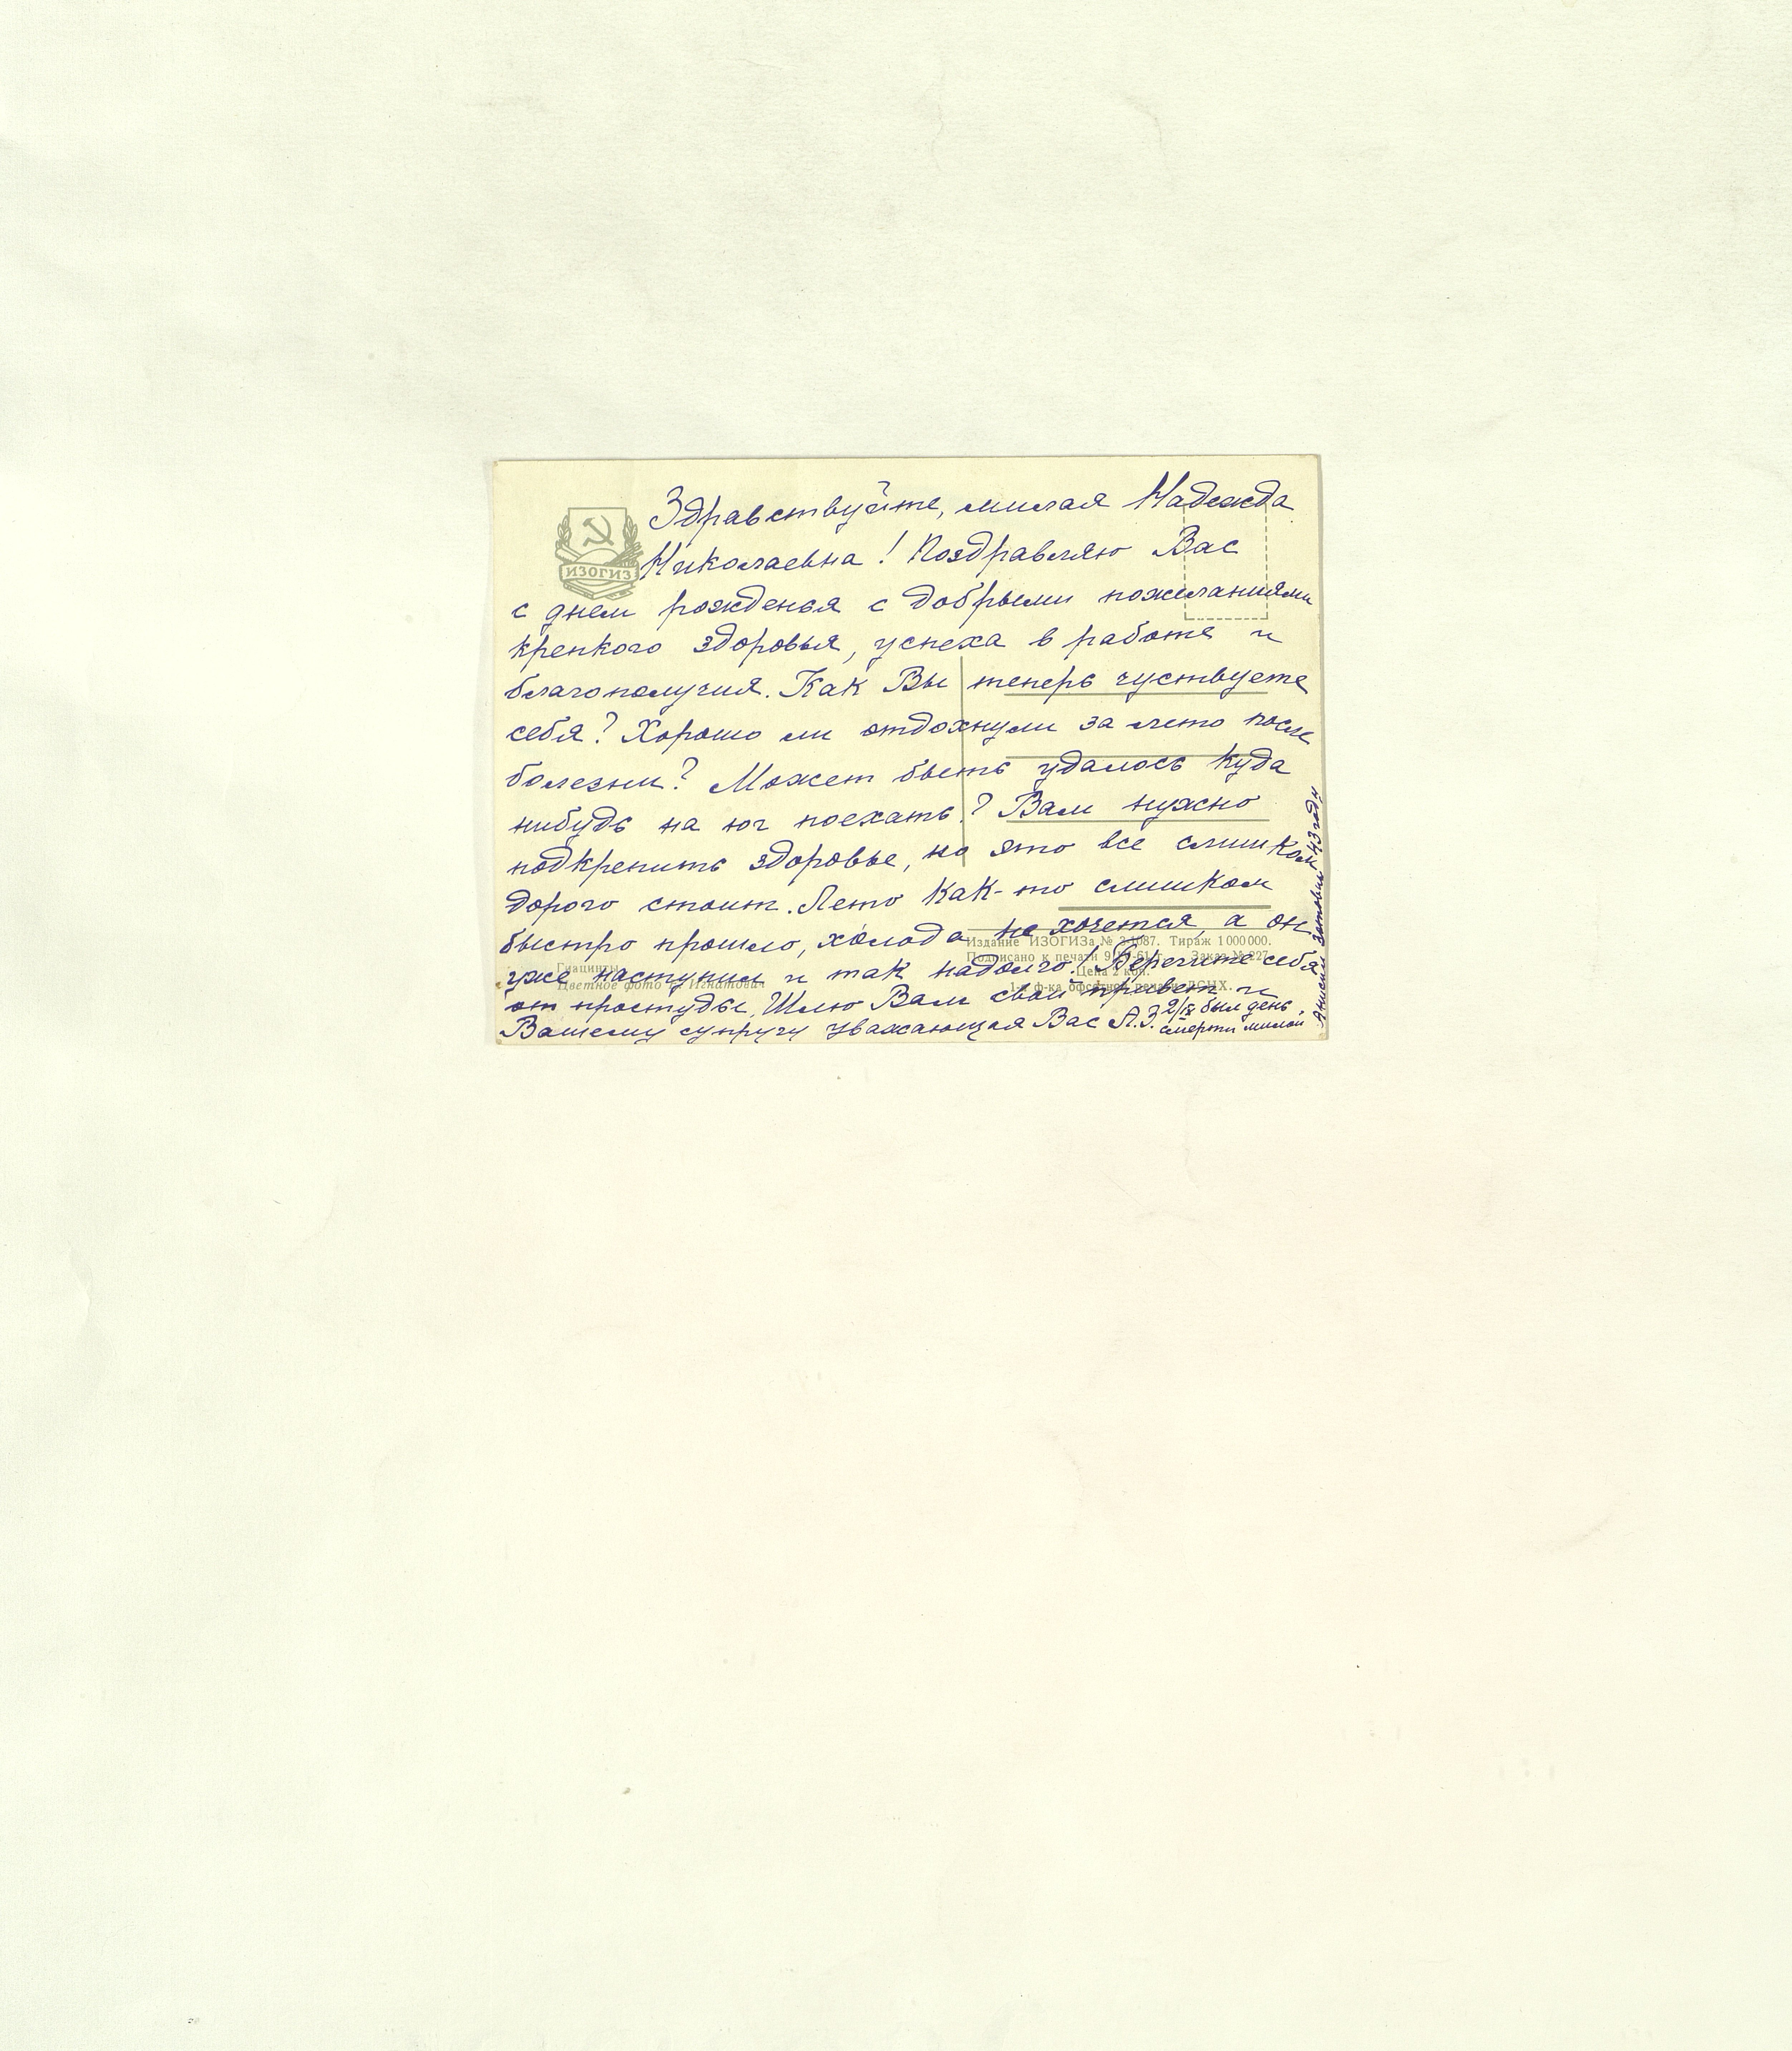 Здравствуйте, милая Надежда
Николаевна! Поздравляю Вас
с днем рожденья с добрыми пожеланиями
крепкого здоровья, успеха в работе и
благополучия. Как Вы теперь чуствуете
себя? Хорошо ли отдохнули за лето после
болезни? Может быть удалось куда
нибудь на юг поехать? Вам нужно
подкрепить здоровье, но это все слишком
дорого стоит. Лето как-то слишком
быстро прошло, холода не хочется, а он
уже наступил и так надолго! Берегите себя
от простуды. Шлю Вам свой привет и
Вашему супругу уважающая Вас А.З. 2/IX был день
смерти милой
43 годы
ИЗОГИЗ
Издание ИЗОГИЗа № 3-1087. Тираж 1 000 000.
Подписано к печати
Цена 2 коп.
1-я ф-ка офсетной печати ЛСНХ.
Гиацинты
Цветное фото Б. Игнатович